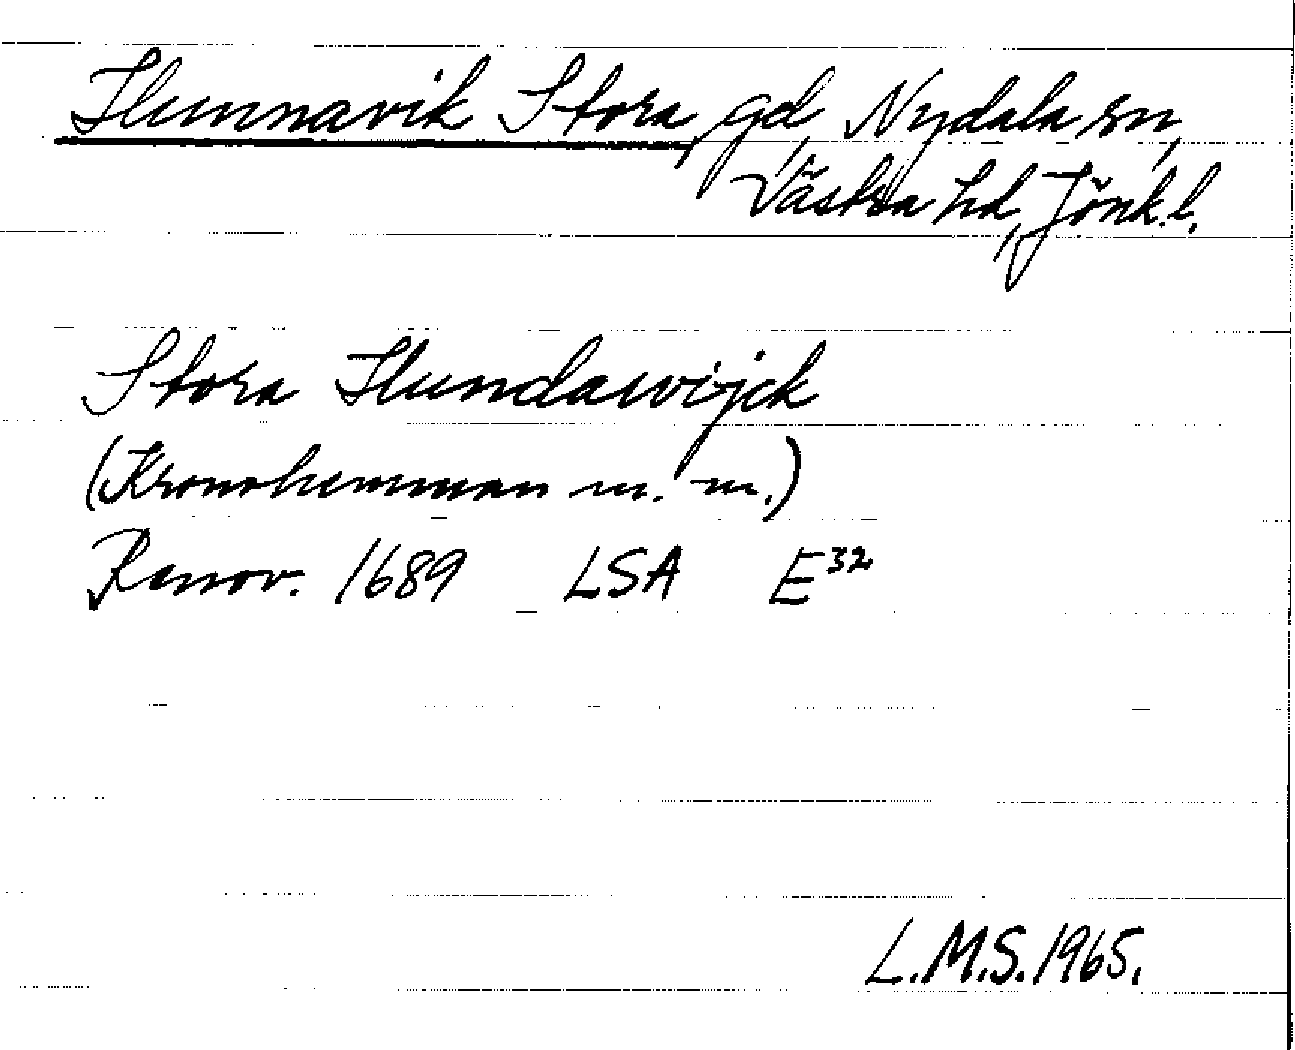 Hunnavik Stora, gd, Nydala sn,
Västra hd, Jönk.l.
Stora Hundawijck
(Kronohemman m. m.)
Renov. 1689 LSA E³²
L.M.S. 1965.